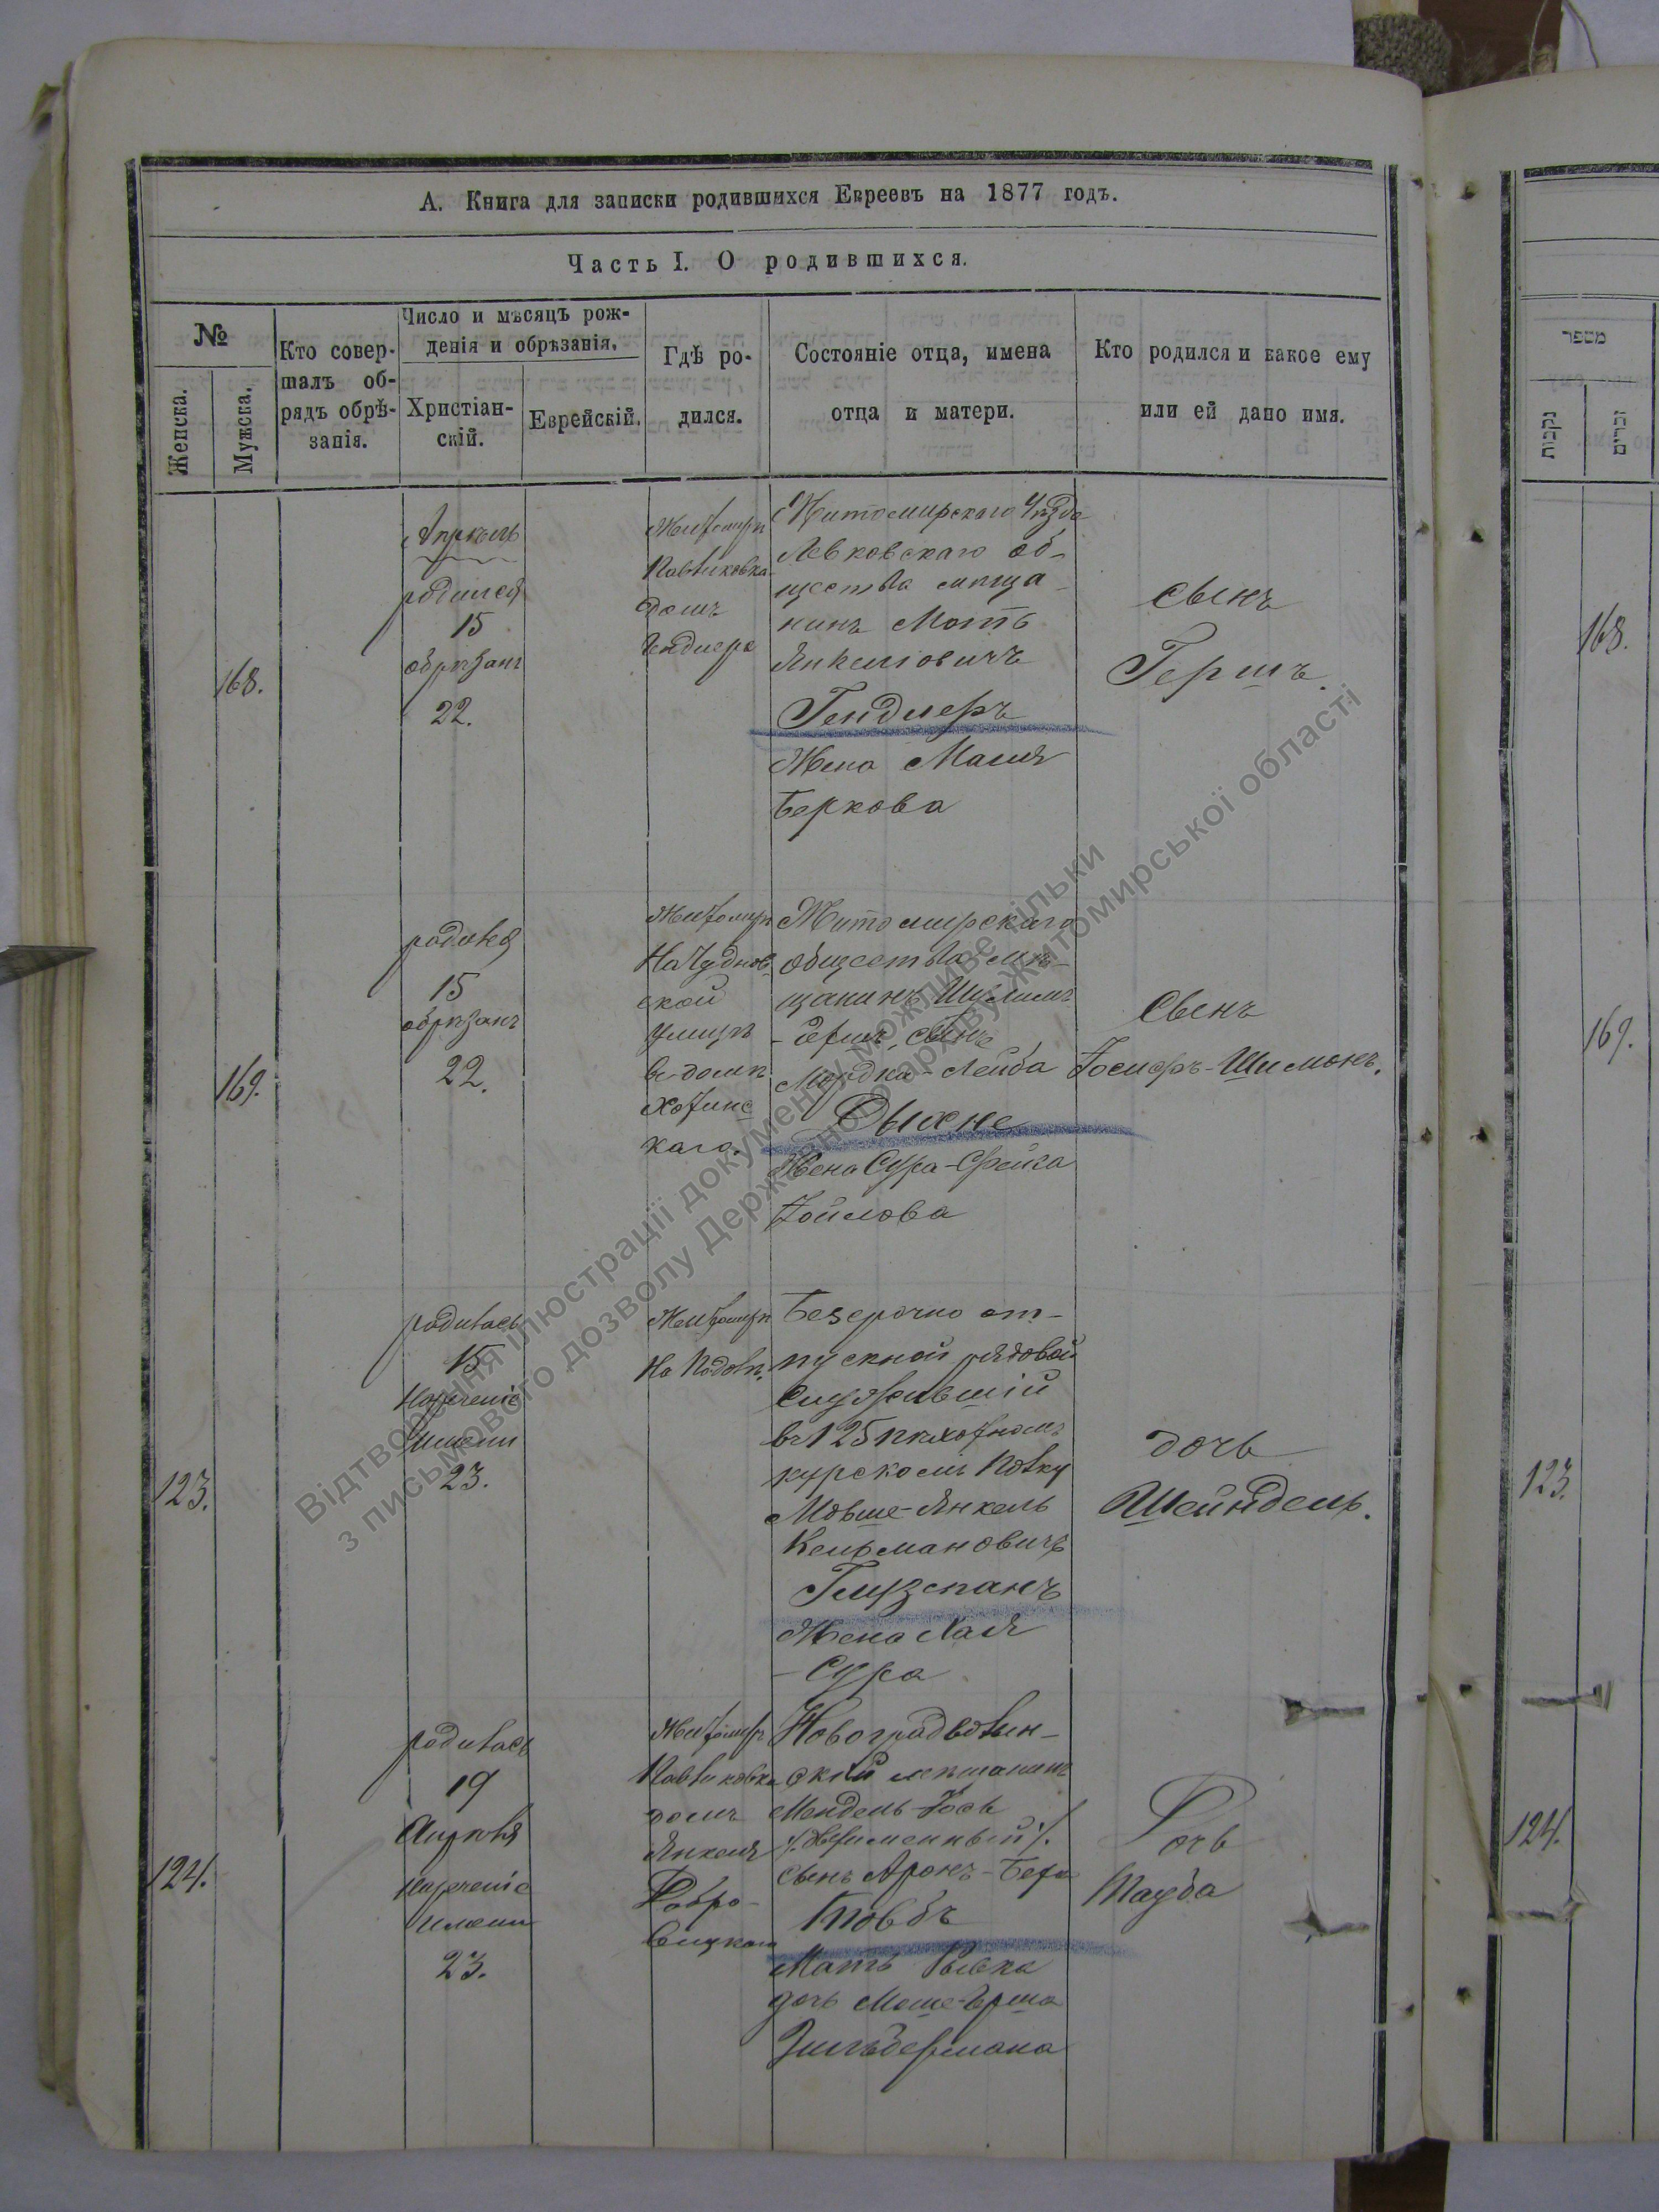 А. Книга для записки родившихся Евреевъ на 1877 годъ.
Часть I. О родившихся.
№
Женска.
Мужска.
Кто совер-
шалъ об-
рядъ обрѣ-
занія.
Число и мѣсяцъ рож-
денія и обрѣзанія.
Христіан-
скій.
Еврейскій.
Гдѣ ро-
дился.
Состояніе отца, имена
отца и матери.
Кто родился и какое ему
или ей дано имя.
168.
Апрель
родился
15
обрѣзанъ
22.
Житомиръ
Павликовка
домъ
Гендлера
Житомирскаго Уѣзда
Левковскаго об-
щества мѣща-
нинъ Моть
Янкелiовичъ
Гендлеръ
Жена Маля
Беркова
сынъ
Гершъ.
169.
родился
15
обрѣзанъ
22.
Житомиръ
На Чуднов-
ской
улицѣ
в домѣ
Хотинс
каго.
Житомирскаго
общества мѣ-
щанинъ Шулимъ
-Гершъ, сынъ
Мордка-Лейба
Жена Сура-Фейга
Іойлова
Сынъ
Іосифъ-Шимонъ.
123.
родилась
15
Нареченіе
имени
23.
Житомиръ
На Подолѣ.
Безсрочно от-
пускной рядовой
служившій
въ 125 пѣхотномъ
курскомъ полку
Мовше-Янкель
Кельмановичъ
Глузманъ
Жена Хая
-Сура
дочь
Шейндель.
124.
родилась
19
Апрѣля
Нареченіе
имени
23.
Житомиръ
Павликовка
домъ
Янкеля
Добро-
вицкаго
Новоградволын-
скій мѣщанинъ
Мендель-Іось
сынъ Аронъ-Бера
Мать Рывка
дочь Моше-Герша
Зильбермана
Дочь
Тауба
מספר
נקבות
זכרים
168.
169.
123.
124.
Відтворення ілюстрації документу можливе тільки
з письмового дозволу Державного архіву Житомирської області